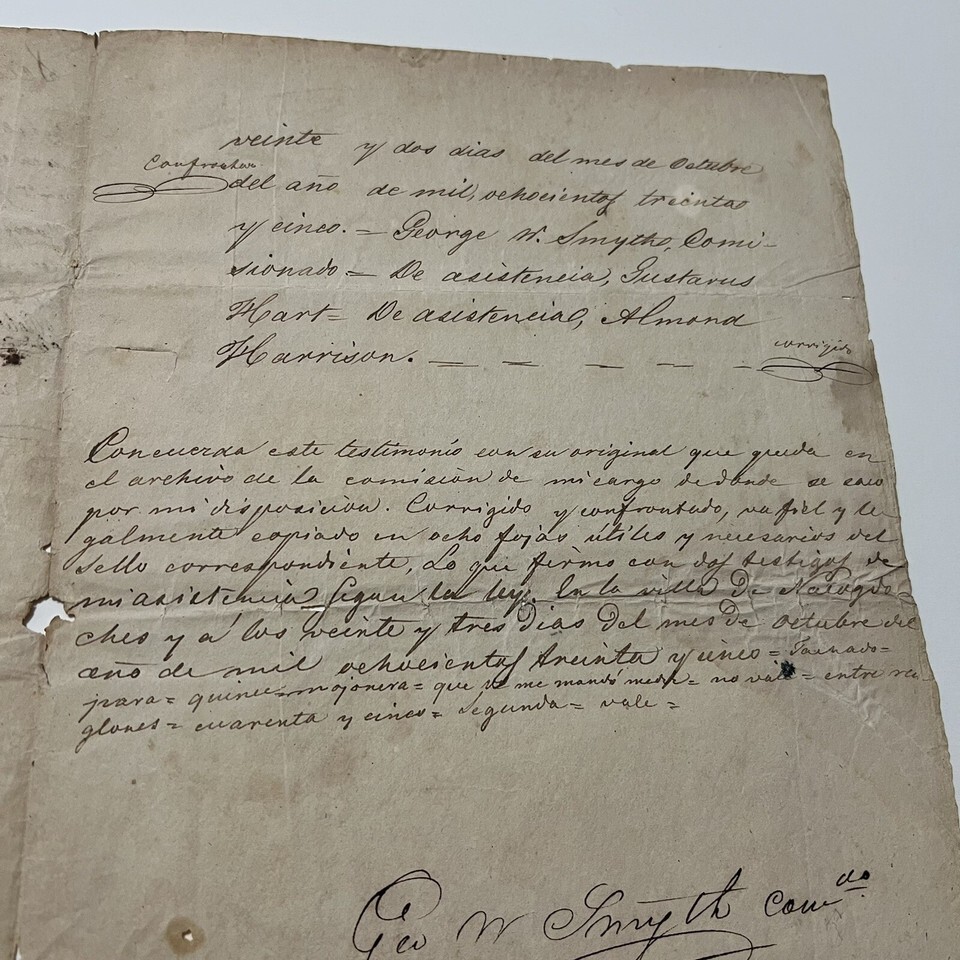 veinte y dos dias del mes de Octubre
Confrontado
del año de mil, ochocientos treinta
y cinco. = George W. Smyth, Comi-
sionado = De asistencia, Gustavus
Hart = De asistencia, Almond
Harrison. = = = = =
corrigido
Concuerda este testimonio con su original que queda en
el archivo de la comision de mi cargo de donde se saco
por mi disposicion. Corrigido y confrontado, va fiel y le
galmente copiado en ocho fojas útiles y necesarios del
sello correspondiente, Lo que firmo con dos testigos de
mi asistencia segun la ley. En la villa De Nacogdo
ches y á los veinte y tres Dias Del mes De Octubre del
año de mil ochocientos treinta y cinco = Tachado =
para = quince = mojonera = que se me mandó medir = no vale = entre ren
glones = cuarenta y cinco = segunda = vale =
Geo W Smyth com.do